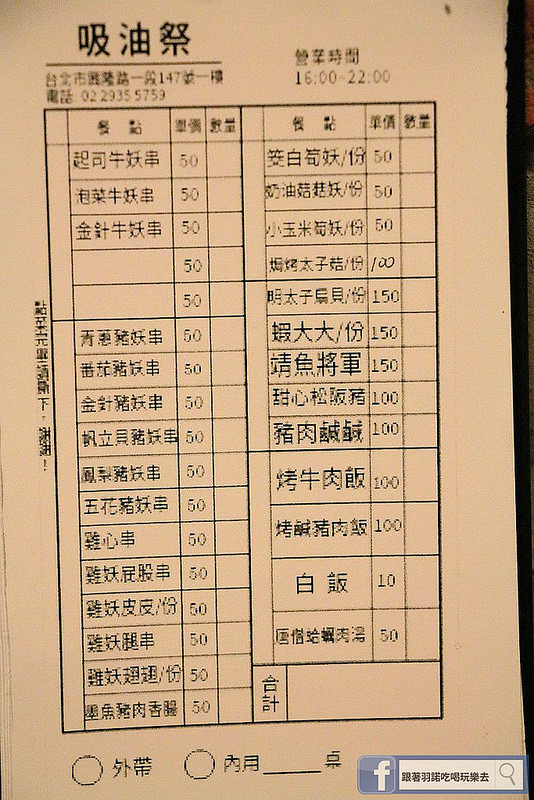 吸油祭
台北市興隆路一段147號一樓
電話: 02 2935 5759
營業時間
16:00~22:00
餐 點 單價 數量
起司牛妖串 50
泡菜牛妖串 50
金針牛妖串 50
50
50
青蔥豬妖串 50
番茄豬妖串 50
金針豬妖串 50
帆立貝豬妖串 50
鳳梨豬妖串 50
五花豬妖串 50
雞心串 50
雞妖屁股串 50
雞妖皮皮/份 50
雞妖腿串 50
雞妖翅翅/份 50
墨魚豬肉香腸 50
餐 點 單價 數量
筊白筍妖/份 50
奶油菇菇妖/份 50
小玉米筍妖/份 50
焗烤太子菇/份 100
明太子扇貝/份 150
蝦大大/份 150
靖魚將軍 150
甜心松阪豬 100
豬肉鹹鹹 100
烤牛肉飯 100
烤鹹豬肉飯 100
白 飯 10
唐僧蛤蠣肉湯 50
合計
點菜完畢請撕下，謝謝！
外帶 內用 桌
跟著羽諾吃喝玩樂去